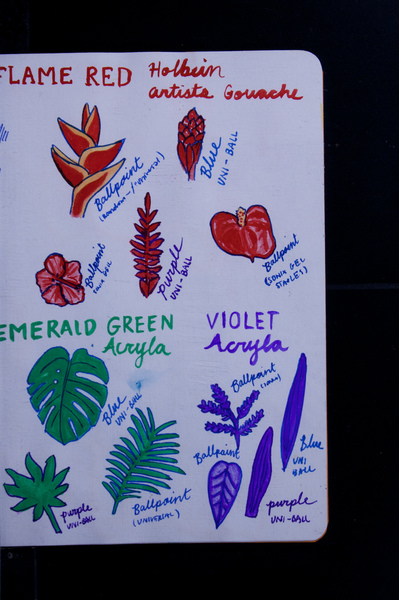 FLAME RED Holbein
artists Gouache
Ballpoint
Blue
UNI-BALL
Ballpoint
SONIA GEL
purple
UNI-BALL
Ballpoint
(SONIA GEL
STAPLES)
EMERALD GREEN
Acryla
VIOLET
Acryla
Blue
UNI-BALL
Ballpoint
Ballpoint
Blue
UNI
BALL
purple
UNI-BALL
Ballpoint
(UNIVERSAL)
purple
UNI-BALL